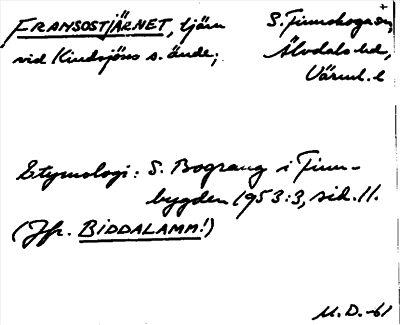 FRANSOSTJÄRNET, tjärn
vid Kindsjöns s. ände;
S. Finnskoga sn,
Älvdals hd,
Värml. l
Etymologi: S. Bograng i Finn-
bygden 1953:3, sid. 11.
(Jfr. BIDDALAMM!)
M.D.-61